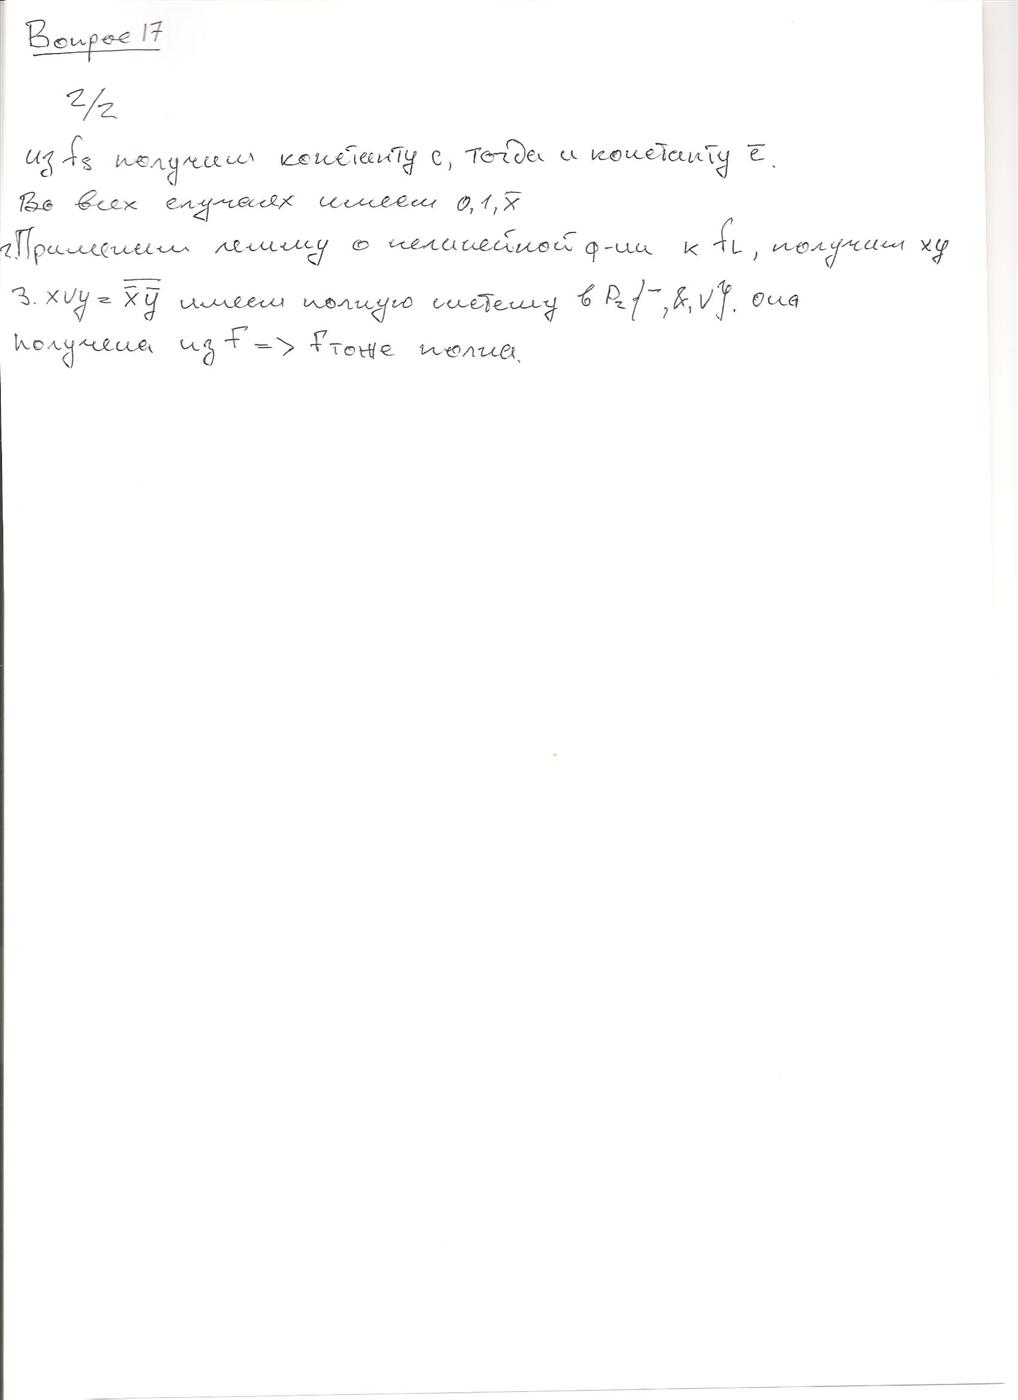 Вопрос 17
2/2
из f₈ получим константу c, тогда и константу c̅.
Во всех случаях имеем 0, 1, x̅
2. Применим лемму о нелинейной ф-ии к f_L, получим xy
3. x∨y = \overline{x̅ y̅} имеем полную систему в P₂ {‾, &, ∨}. она
получена из F => F тоже полна.